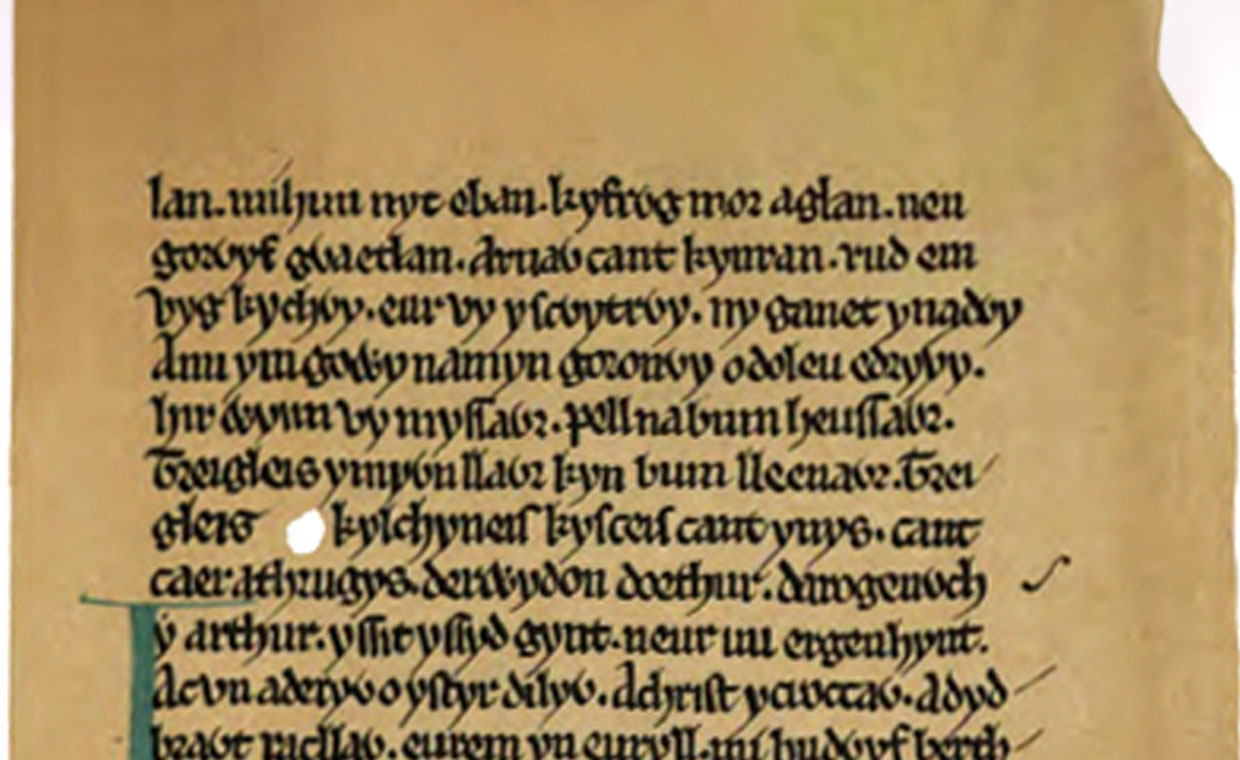 lan. mihun nyt eban. kyfrỽg mor aglan. neu
gorỽyf gỽaetlan. Arnaỽ cant kynran. rud em
vyg kychỽy. eur vy yscỽytrỽy. ny ganet ynadỽy
Auu ym goỽy namyn goronỽy odoleu edryỽy.
hir ỽynn vy myssaỽr. pell nabum heussaỽr.
Treigleis ymyỽn llaỽr kyn bum lleenaỽr. Trei
gleis kylchyneis kysceis cant ynys. cant
caer athrugys. derỽydon doethur. darogenỽch
y arthur. yssit yssyd gynt. neur uu ergenhynt.
Acvn aderyỽ o ystyr dilyỽ. Achrist ycroccaỽ. Adyd
braỽt racllaỽ. eurem yn euryll. mi hudỽyf berth